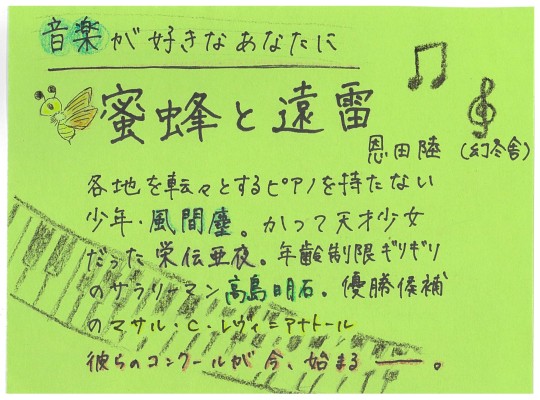 音楽が好きなあなたに
蜜蜂と遠雷
恩田陸 (幻冬舎)
各地を転々とするピアノを持たない
少年・風間塵。かつて天才少女
だった栄伝亜夜。年齢制限ギリギリ
のサラリーマン高島明石。優勝候補
のマサル・C・レヴィ=アナトール
彼らのコンクールが今、始まる――。